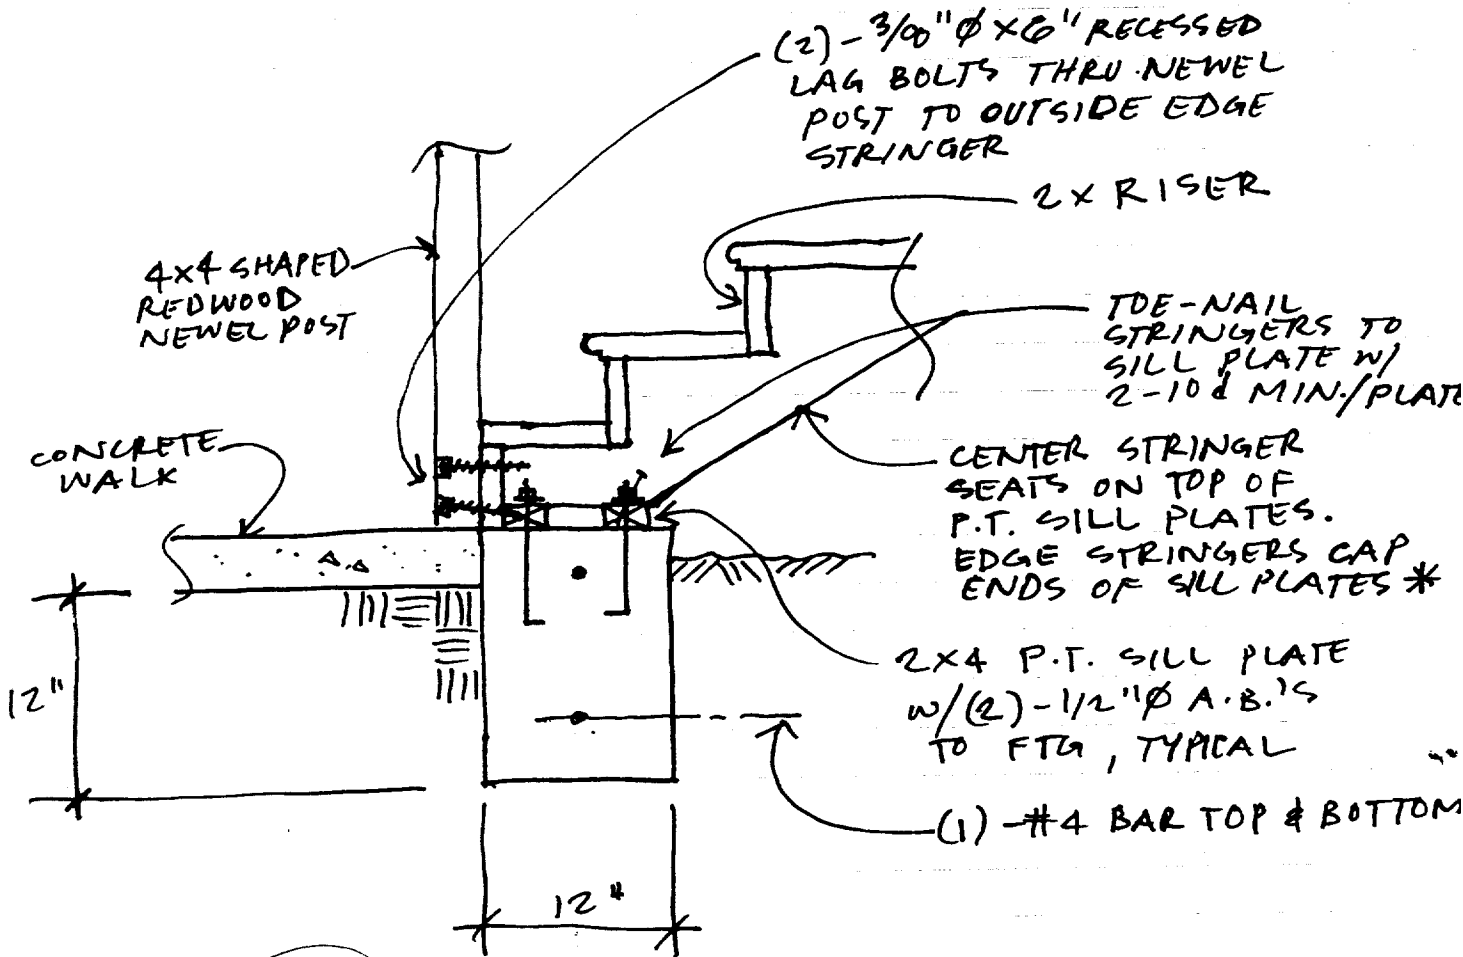 (2)-3/8"Ø x 6" RECESSED
LAG BOLTS THRU NEWEL
POST TO OUTSIDE EDGE
STRINGER
2x RISER
4x4 SHAPED
REDWOOD
NEWEL POST
TOE-NAIL
STRINGERS TO
SILL PLATE W/
2-10d MIN./PLATE
CONCRETE
WALK
CENTER STRINGER
SEATS ON TOP OF
P.T. SILL PLATES.
EDGE STRINGERS CAP
ENDS OF SILL PLATES *
12"
2x4 P.T. SILL PLATE
W/(2)-1/2"Ø A.B.'S
TO FTG, TYPICAL
(1)-#4 BAR TOP & BOTTOM
12"